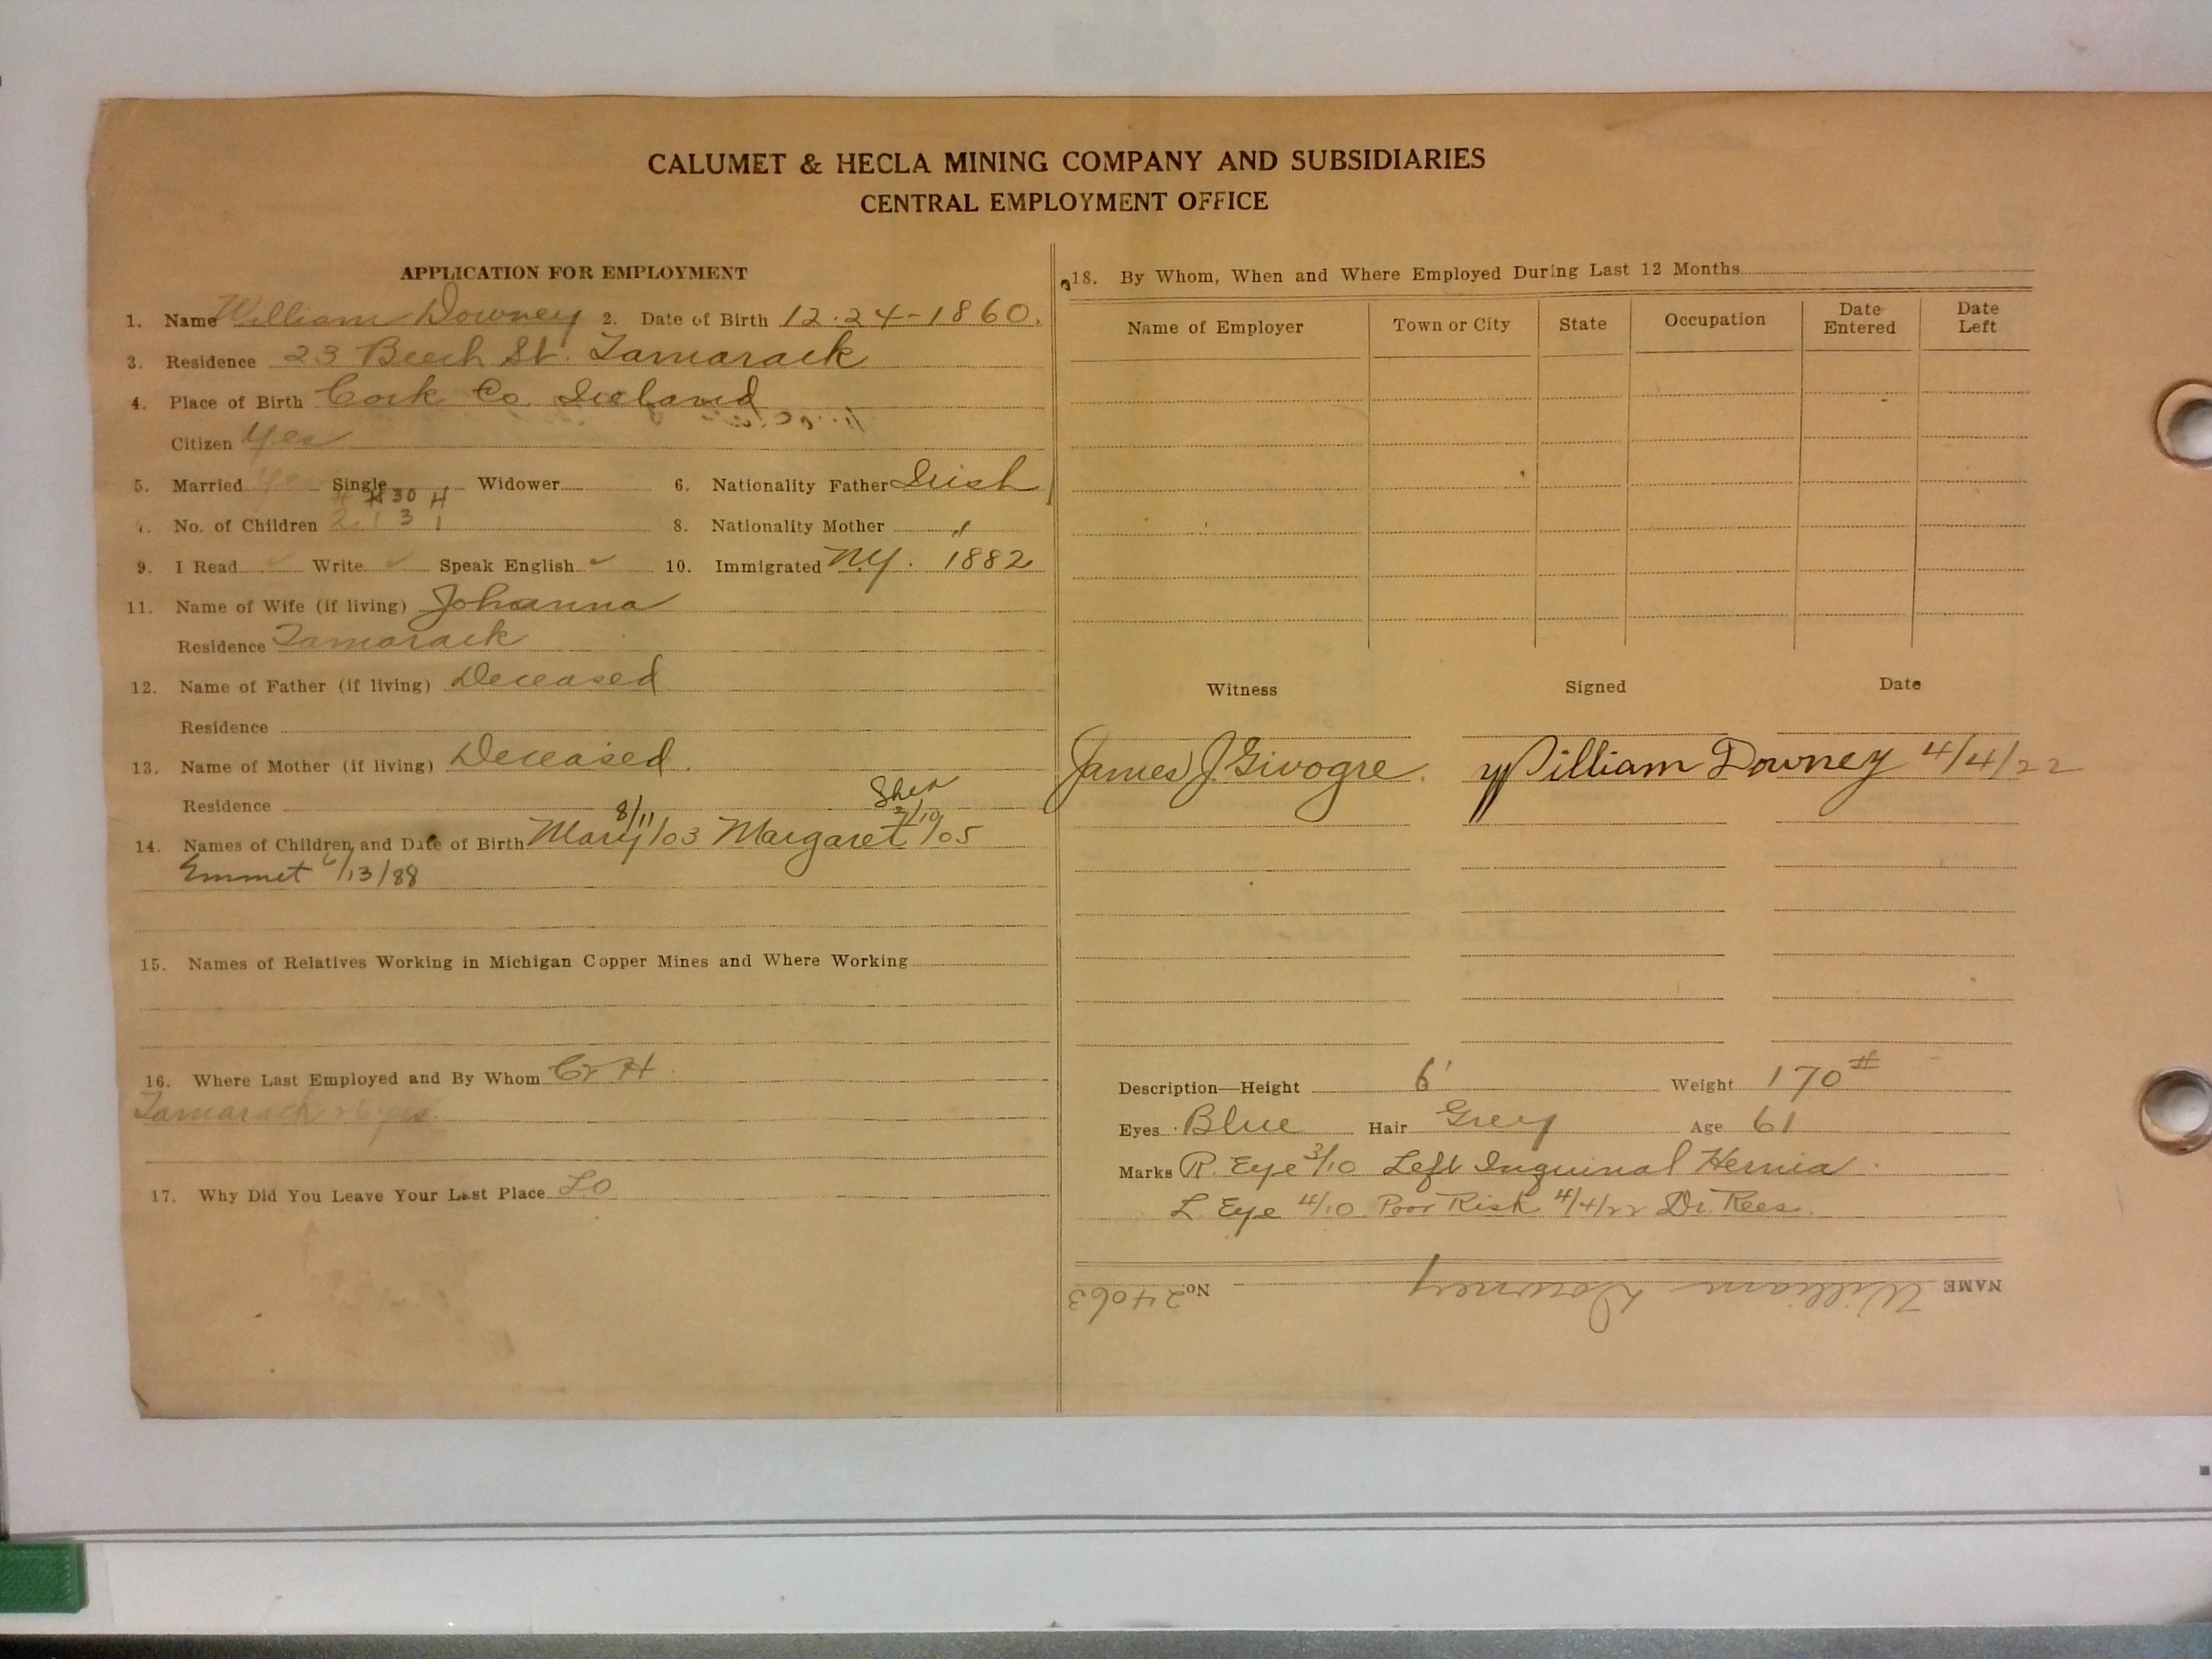 CALUMET & HECLA MINING COMPANY AND SUBSIDIARIES
CENTRAL EMPLOYMENT OFFICE
APPLICATION FOR EMPLOYMENT
1. Name William Downey 2. Date of Birth 12-24-1860.
3. Residence 23 Beech St. Tamarack
4. Place of Birth Cork Co. Ireland
Citizen Yes
5. Married Yes Single Widower 6. Nationality Father Irish
30 H
7. No. of Children 2 1 3 1 8. Nationality Mother "
9. I Read ✓ Write ✓ Speak English ✓ 10. Immigrated N.Y. 1882
11. Name of Wife (if living) Johanna
Residence Tamarack
12. Name of Father (if living) Deceased
Residence
13. Name of Mother (if living) Deceased.
Residence
Shea
14. Names of Children and Date of Birth Mary 8/11/03 Margaret 2/10/05
Emmet 6/13/88
15. Names of Relatives Working in Michigan Copper Mines and Where Working
16. Where Last Employed and By Whom C & H
Tamarack 26 yrs.
17. Why Did You Leave Your Last Place LO
18. By Whom, When and Where Employed During Last 12 Months
Name of Employer Town or City State Occupation Date Entered Date Left
Witness Signed Date
James J Givogre. William Downey 4/4/22
Description—Height 6' Weight 170#
Eyes Blue Hair Grey Age 61
Marks R. Eye 3/10 Left Inguinal Hernia.
L. Eye 4/10 Poor Risk 4/4/22 Dr. Rees.
NAME William Downey No. 24063